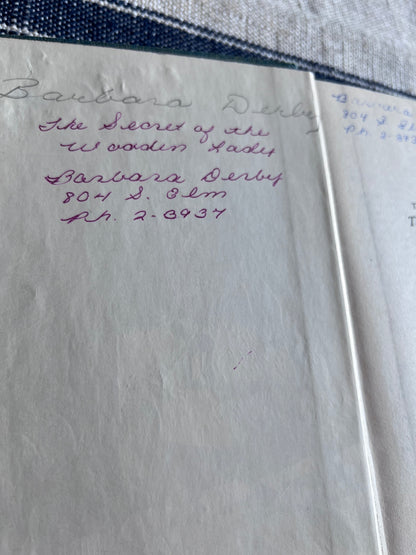 Barbara Derby
The Secret of the
Wooden Lady
Barbara Derby
804 S. Elm
Ph. 2-3937
Barbara
804 S. El
Ph. 2-393
T